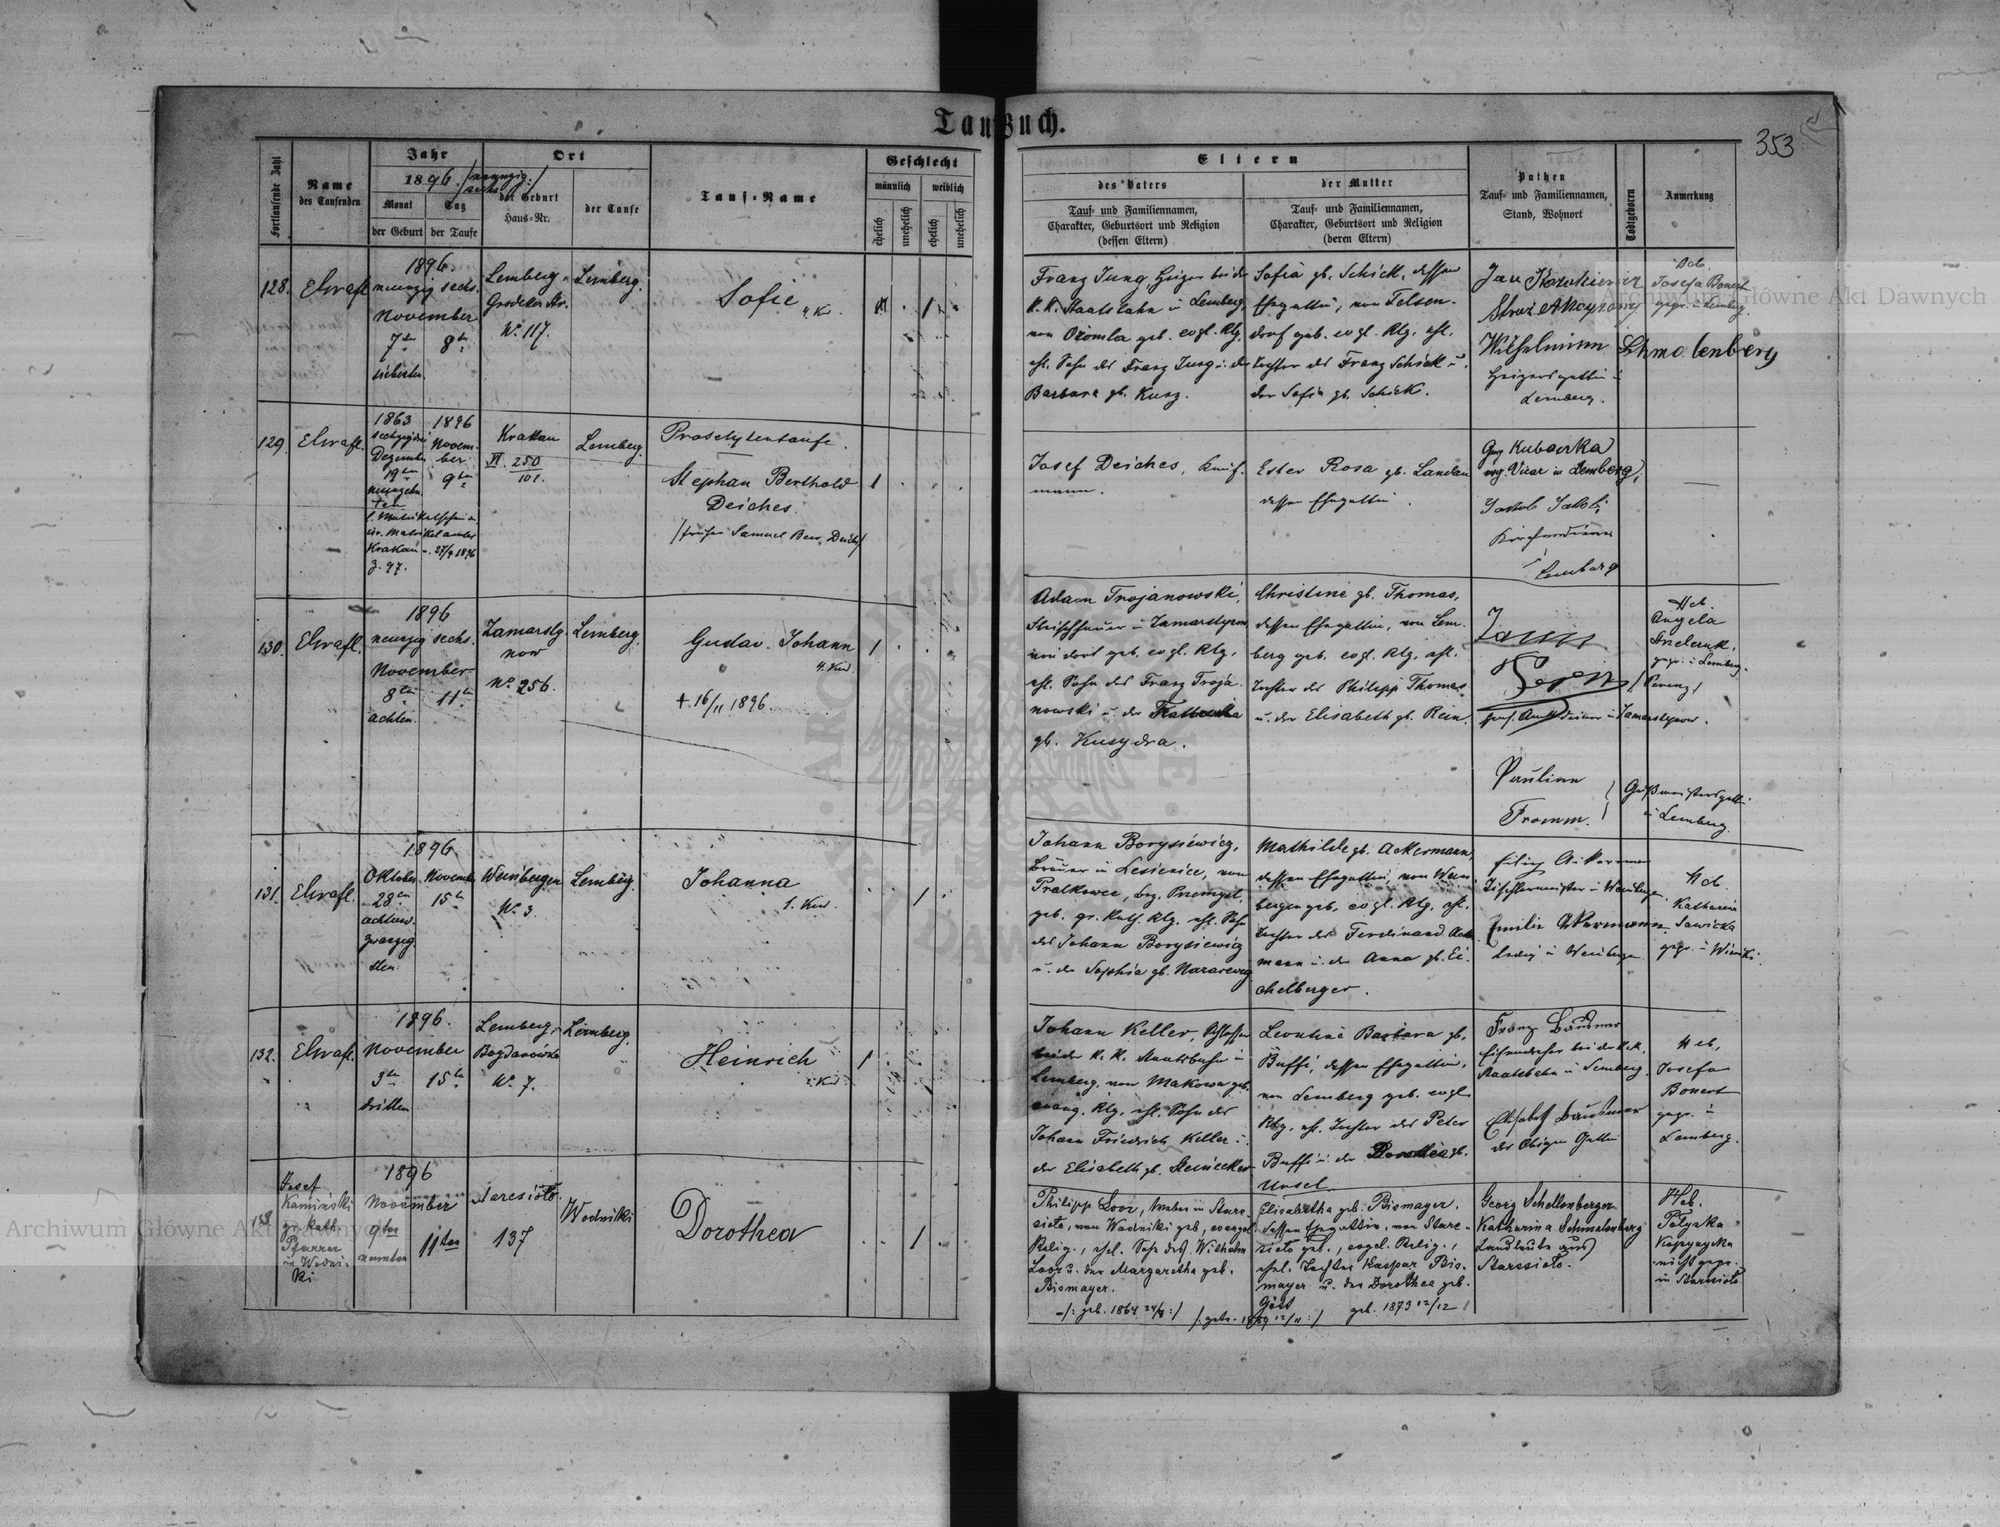 Taufbuch.
353
Fortlaufende Zahl
Name
des Taufenden
Jahr
1896. /neunzig
sechs:/
Monat
Tag
der Geburt
der Taufe
Ort
der Geburt
Haus-Nr.
der Taufe
Tauf-Name
Geschlecht
männlich
weiblich
ehelich
unehelich
ehelich
unehelich
Eltern
des Vaters
Tauf- und Familiennamen,
Charakter, Geburtsort und Religion
(dessen Eltern)
der Mutter
Tauf- und Familiennamen,
Charakter, Geburtsort und Religion
(deren Eltern)
Pathen
Tauf- und Familiennamen,
Stand, Wohnort
Todtgeboren
Anmerkung
128.
1896.
neunzig sechs.
November
7te 8te
siebenten
Lemberg,
Grodeker Str.
No 117.
Lemberg.
Sofie
4. Kind.
1
Franz Jung, Heizer bei der
K. K. Staatsbahn in Lemberg,
von Ożomla geb. evgl. Rlg.
ehl. Sohn des Franz Jung u. der
Barbara gb. Kusz.
Sofia gb. Schick, dessen
Ehegattin, von Felsen-
dorf geb. evgl. Rlg. ehl.
Tochter des Franz Schick u.
der Sofia gb. Schick.
Jan
Wilhelmine Schmalenberg
Heizersgattin in
Lemberg.
Heb.
Josefa Bonert
gepr. in Lemberg.
129.
1863 1896
sechzigdrei Novem-
Dezember ber
19te 9te
neunzehn-
ten
Krakau 27/9 1896
Z. 97.
Krakau
VI. 250
101.
Lemberg.
Proselytentaufe.
Stephan Berthold
Deiches.
/früher Samuel Beer Deiches/
1
Josef Deiches, Kauf-
mann.
Ester Rosa gb. Landau
dessen Ehegattin.
Kubaczka
evg. Vicar in Lemberg,
Jakob Jakobi
Kirchendiener
in Lemberg
130.
1896
neunzig sechs.
November
8te 11te
achten.
Zamarsty-
now
No 256.
Lemberg.
Gustav Johann
4. Kind.
+ 16/11 1896.
1
Adam Trojanowski,
Fleischhauer in Zamarstynow
von dort geb. evgl. Rlg.
ehl. Sohn des Franz Troja-
nowski u. der
gb. Kusydra.
Christine gb. Thomas,
dessen Ehegattin, von Lem-
berg geb. evgl. Rlg. ehl.
Tochter des Philipp Thomas
u. der Elisabeth gb. Rein.
Amtsdiener in Zamarstynow.
Pauline
Fromm.
in Lemberg.
Heb.
Angela
gepr. in Lemberg.
131.
1896
Oktober November
28te 15te
achtund-
zwanzig
sten
Weinbergen
No 3.
Lemberg.
Johanna
1. Kind.
1
Johann Borysiewicz,
Brauer in Lesienice, von
Pralkowce, bez. Przemysl,
geb. gr. kath. Rlg. ehl. Sohn
des Johann Borysiewicz
u. der Sophia gb. Nazarewicz
Mathilde gb. Ackermann,
dessen Ehegattin, von Wein-
bergen geb. evgl. Rlg. ehl.
Tochter des Ferdinand Acker-
mann u. der Anna gb. Ei-
chelberger.
Filip Ackermann
Tischlermeister in Weinbergen.
Emilie Akermann
ledig in Weinbergen
Heb.
Katharina
Sawicka
gepr. in Winniki.
132.
1896.
November
3te 15te
dritten
Lemberg,
Bogdanówka
No 7.
Lemberg.
Heinrich
Kind
1
Johann Keller, Schlosser
bei der K. K. Staatsbahn in
Lemberg, von Makowa geb.
evang. Rlg. ehl. Sohn des
Johann Friedrich Keller u.
der Elisabeth gb. Steinecker
Leontine Barbara gb.
Buffi, dessen Ehegattin,
von Lemberg geb. evgl.
Rlg. ehl. Tochter des Peter
Buffi u. der Dorothea gb.
Unsel.
Franz
Eisendreher bei der K.K.
Staatsbahn in Lemberg.
Elisabeth
des Obigen Gattin
Heb.
Josefa
Bonert
gepr. in
Lemberg.
133.
Josef
Kamiński
gr. kath.
Pfarrer
in Wodni-
ki
1896
November
9ten 11ten
neunten
Staresioło.
137
Wodniki
Dorothea
1
Philipp Loos, Weber in Stare-
sioło, von Wodniki geb., evangel.
Relig., ehel. Sohn des Wilhelm
Loos u. der Margaretha geb.
Bismayer.
-/: geb. 1864 24/9 :/
Elisabetha geb. Bismayer,
dessen Ehegattin, von Stare-
sioło geb., evgel. Relig.,
ehel. Tochter Kaspar Bis-
mayer u. der Dorothea geb.
Gött
geb. 1873 12/12
/: getr. 1889 12/11 :/
Georg Schellenberger
Katharina Schmalenberg
Landleute aus
Staresioło.
Heb.
nicht gepr.
in Staresioło
Archiwum Główne Akt Dawnych
Archiwum Główne Akt Dawnych